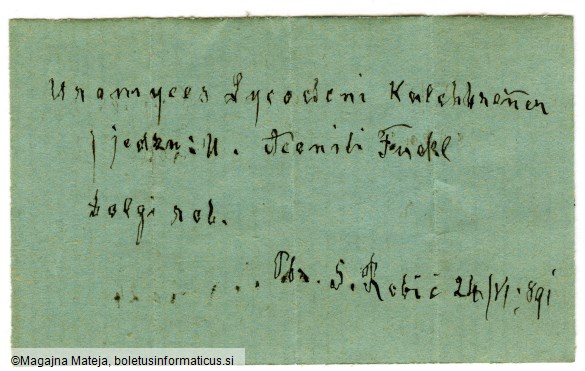 Uromyces Lycoctoni Kalchbrenner
jednak: U. Aconiti Fuckl
Dolgi rob.
S. Robič 24/VI. 891
©Magajna Mateja, boletusinformaticus.si